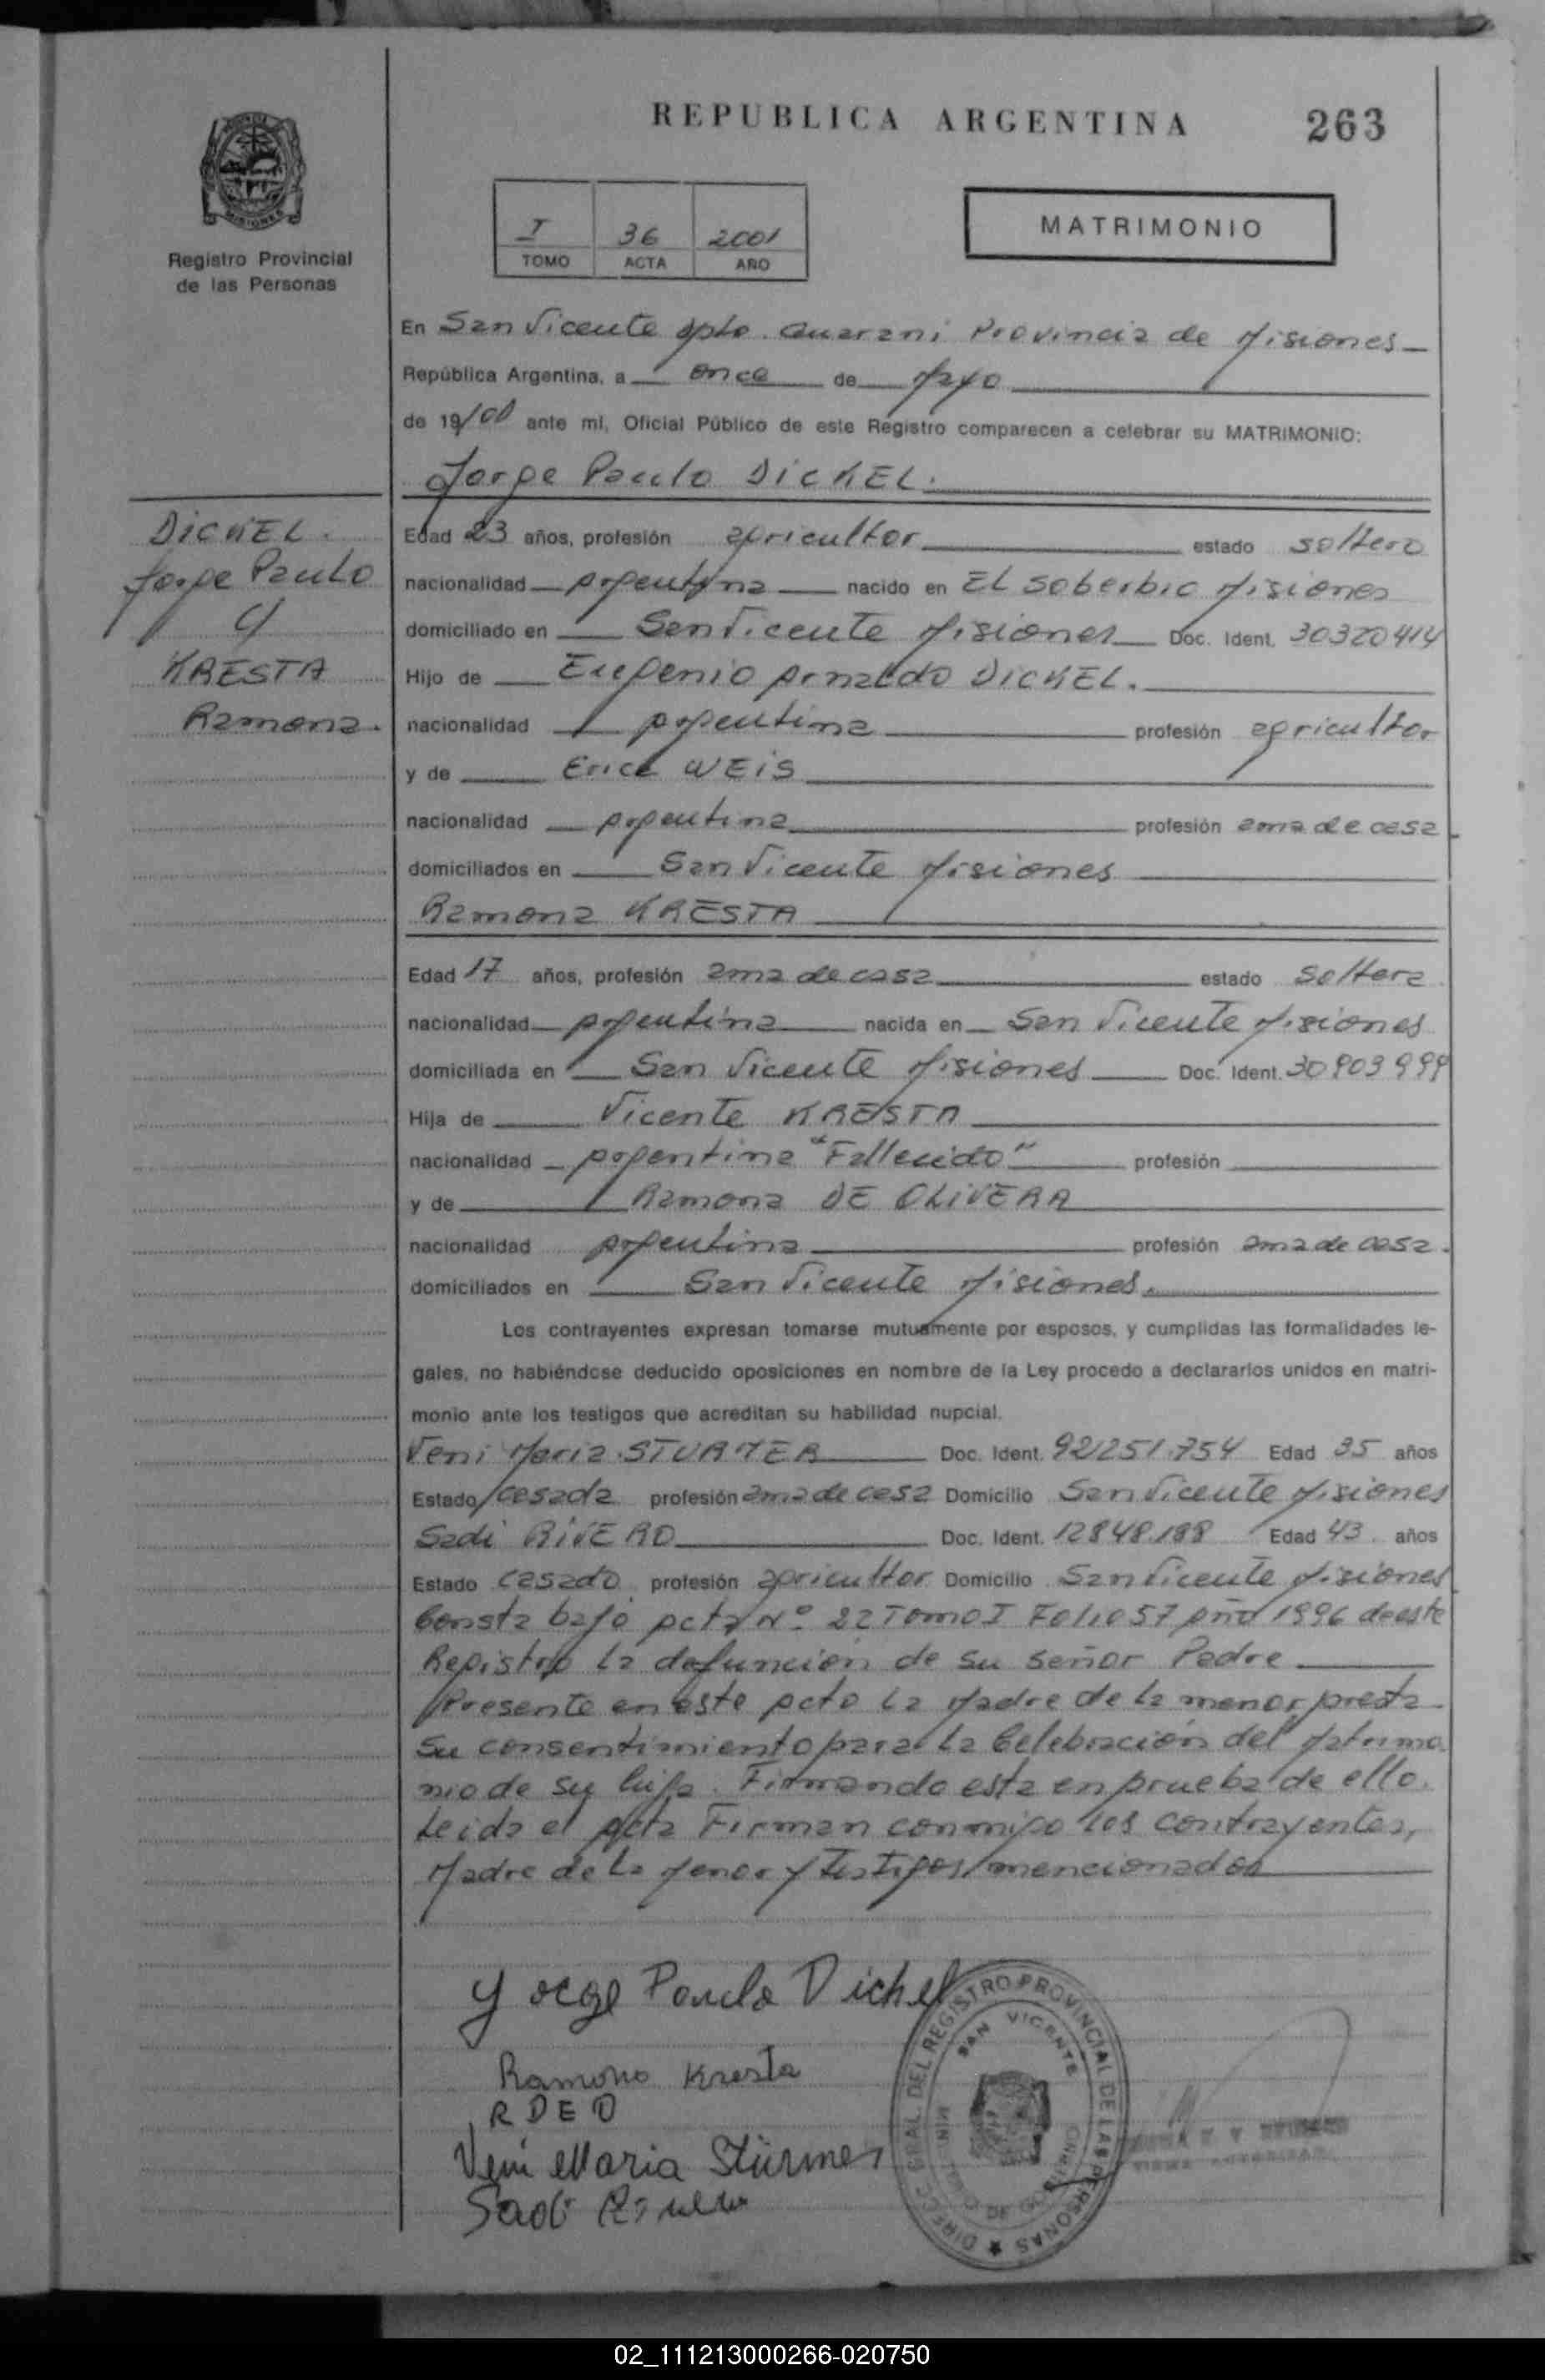 REPUBLICA ARGENTINA
263
MISIONES
Registro Provincial
de las Personas
I 36 2001
TOMO ACTA AÑO
MATRIMONIO
En San Vicente Dpto. Guarani Provincia de Misiones
República Argentina, a once de Mayo
de 19/ ante mí, Oficial Público de este Registro comparecen a celebrar su MATRIMONIO:
Jorge Paulo DICKEL.
DICKEL.
Jorge Paulo
C/
KRESTA
Ramona.
Edad 23 años, profesión agricultor estado soltero
nacionalidad Argentina nacido en EL Soberbio Misiones
domiciliado en San Vicente Misiones Doc. Ident. 30320414
Hijo de Eugenio Arnaldo DICKEL.
nacionalidad Argentina profesión agricultor
y de Erica WEIS
nacionalidad Argentina profesión ama de casa
domiciliados en San Vicente Misiones
Ramona KRESTA
Edad 17 años, profesión ama de casa estado Soltera
nacionalidad Argentina nacida en San Vicente Misiones
domiciliada en San Vicente Misiones Doc. Ident. 30903999
Hija de Vicente KRESTA
nacionalidad Argentina "Fallecido" profesión
y de Ramona DE OLIVERA
nacionalidad Argentina profesión ama de casa.
domiciliados en San Vicente Misiones.
Los contrayentes expresan tomarse mutuamente por esposos, y cumplidas las formalidades le-
gales, no habiéndose deducido oposiciones en nombre de la Ley procedo a declararlos unidos en matri-
monio ante los testigos que acreditan su habilidad nupcial.
Veni Maria STURMER Doc. Ident. 92251.754 Edad 35 años
Estado casada profesión ama de casa Domicilio San Vicente Misiones
Sadi RIVERO Doc. Ident. 12848188 Edad 43 años
Estado casado profesión agricultor Domicilio San Vicente Misiones
Consta bajo Acta Nº 22 Tomo I Folio 57 Año 1996 de este
Registro la defunción de su señor Padre
Presente en este Acto la Madre de la menor, presta
su consentimiento para la Celebración del Matrimo
nio de su hija. Firmando esta en prueba de ello.
Leida el Acta Firman conmigo los contrayentes,
Madre de la Menor y Testigos mencionados
Yorge Paulo Dickel
Ramona Kresta
R D E O
Veni Maria Stürmer
Sadi
DIRECC. GRAL. DEL REGISTRO PROVINCIAL DE LAS PERSONAS
SAN VICENTE
02_111213000266-020750